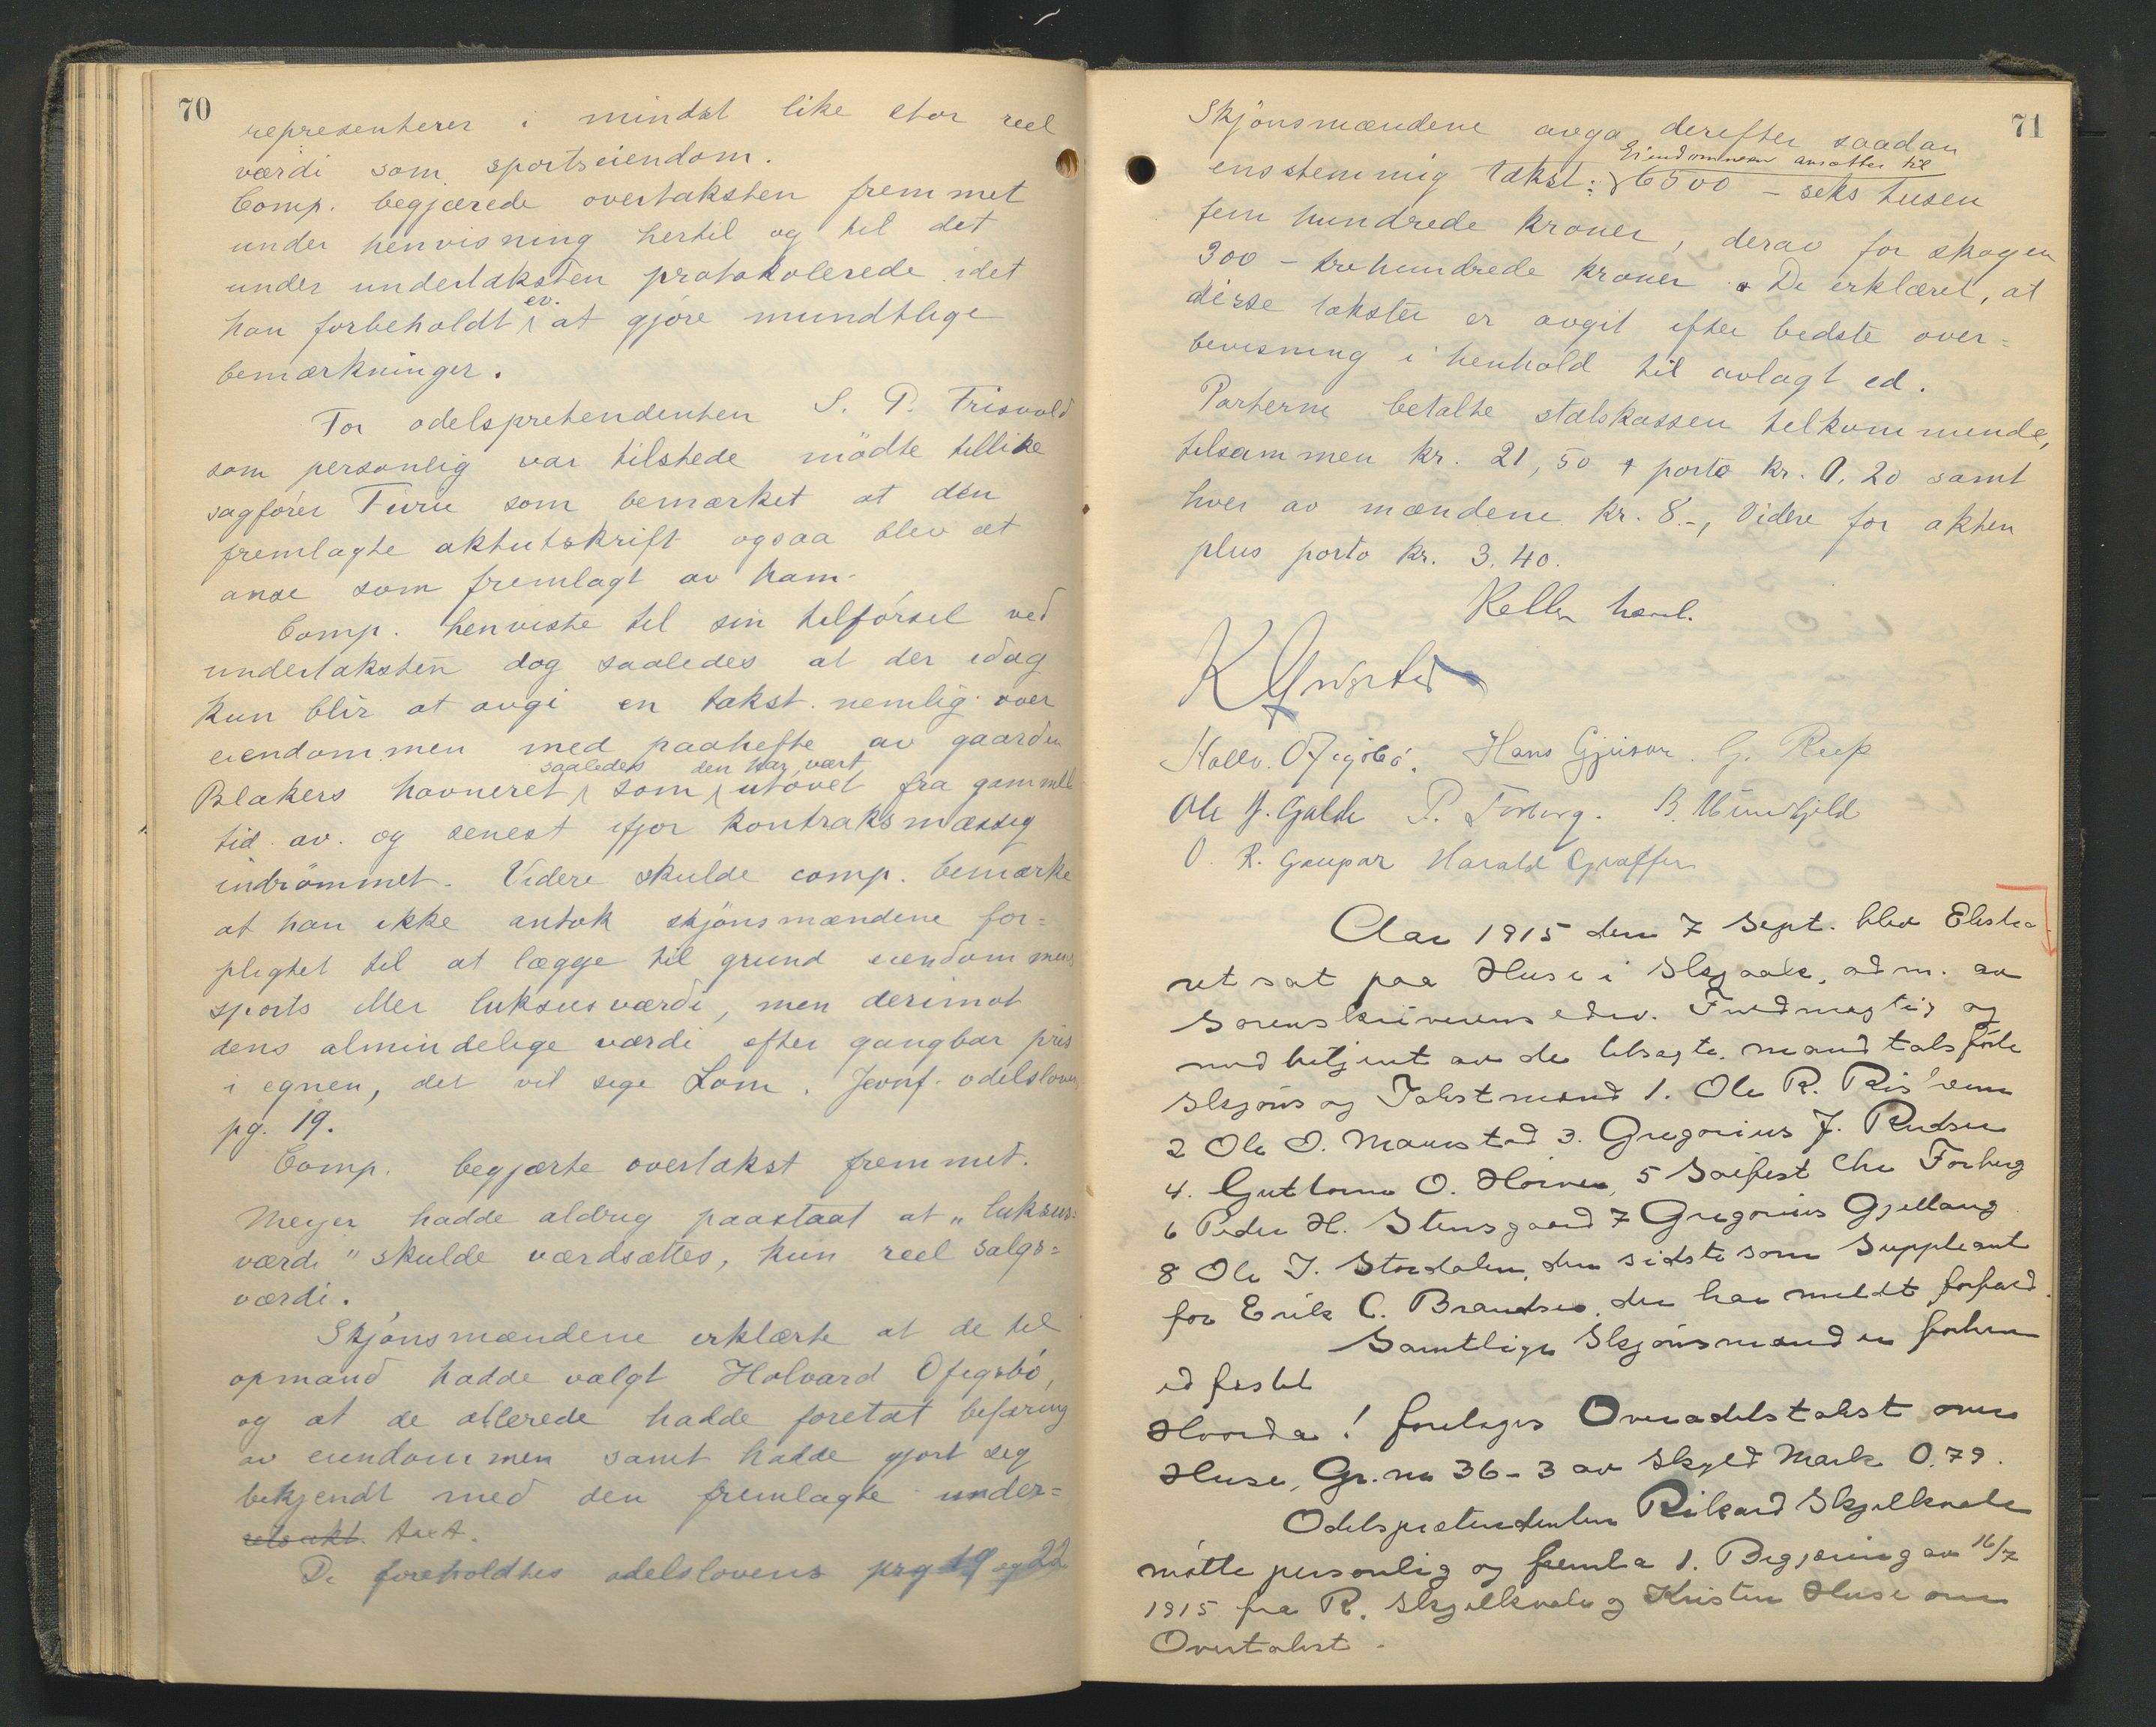 70
representerer i mindst like stor reel
værdi som sportseiendom.
Comp. begjærede overtaksten fremmet
under henvisning hertil og til det
under undertaksten protokolerede idet
han forbeholdt ev. at gjøre mundtlige
bemærkninger.
For odelspretendenten S. P. Frisvold
som personlig var tilstede mødte tillike
sagfører Furu som bemærket at den
fremlagte aktutskrift ogsaa blev at
anse som fremlagt av ham.
Comp. henviste til sin tilførsel ved
undertaksten dog saaledes at der idag
kun blir at avgi en takst nemlig over
eiendommen med paahefte av gaarden
Blakers havneret saaledes som den har vært utøvet fra gammel
tid av og senest ifjor kontraksmæssig
indrømmet. Videre skulde comp. bemærke
at han ikke antok skjønsmændene for=
pligtet til at lægge til grund eiendommens
sports eller luksusværdi, men derimot
dens almindelige værdi efter gangbar pris
i egnen, det vil sige Lom. Jevnf. odelsloven
pg. 19.
Comp. begjærte overtakst fremmet.
Meyer hadde aldrig paastaat at "luksus=
værdi" skulde værdsættes, kun reel salgs=
værdi.
Skjønsmændene erklærte at de til
opmand hadde valgt Halvard Ofigsbø,
og at de allerede hadde foretat befaring
av eiendommen samt hadde gjort sig
bekjendt med den fremlagte under=
takst.
De foreholdtes odelslovens prg 19 og 22
71
Skjønsmændene avga derefter saadan
enstemmig takst: Eiendommen ansættes til 6500 - seks tusen
fem hundrede kroner, derav for skogen
300 - trehundrede kroner. De erklæret, at
disse takster er avgit efter bedste over=
bevisning i henhold til avlagt ed.
Parterne betalte statskassen tilkommende,
tilsammen kr. 21,50 + porto kr. 0.20 samt
hver av mændene kr. 8.-, Videre for akten
plus porto kr. 3.40.
Keller
Hallv. Ofigsbø. Hans Gjeisar. G. Reep
Ole J. Galde P. Forberg.
O. R. Gaupar Harald Graffer
Aar 1915 den 7 Sept. blev Ekstra
ret sat paa Huse i Skjaak, adm. av
Sorenskriverens edsv. Fuldmægtig og
medbetjent av de tilsagte, mandtalsførte
Skjøns og Takstmænd 1. Ole R. Risheim
2 Ole O. Maurstad 3. Gregorius J. Rudsen
4. Guttorm O. Horven, 5 Soefest Chr Forberg
6 Peder H. Stensgaard 7 Gregorius Gjellaug
8 Ole J. Stordalen, den sidste som Suppleant
for Erik C. Brandsis, der har meldt forfald.
Samtlige Skjønsmænd er forhen
edfæstet
Hvorda! foretages Overodelstakst over
Huse, Gr. no 36-3 av Skyld Mark 0.79.
Odelsprætendenten Rikard Skjelkvale
møtte personlig og fremla 1. Begjæring av 16/7
1915 fra R. Skjelkvale og Kristen Huse om
Overtakst.